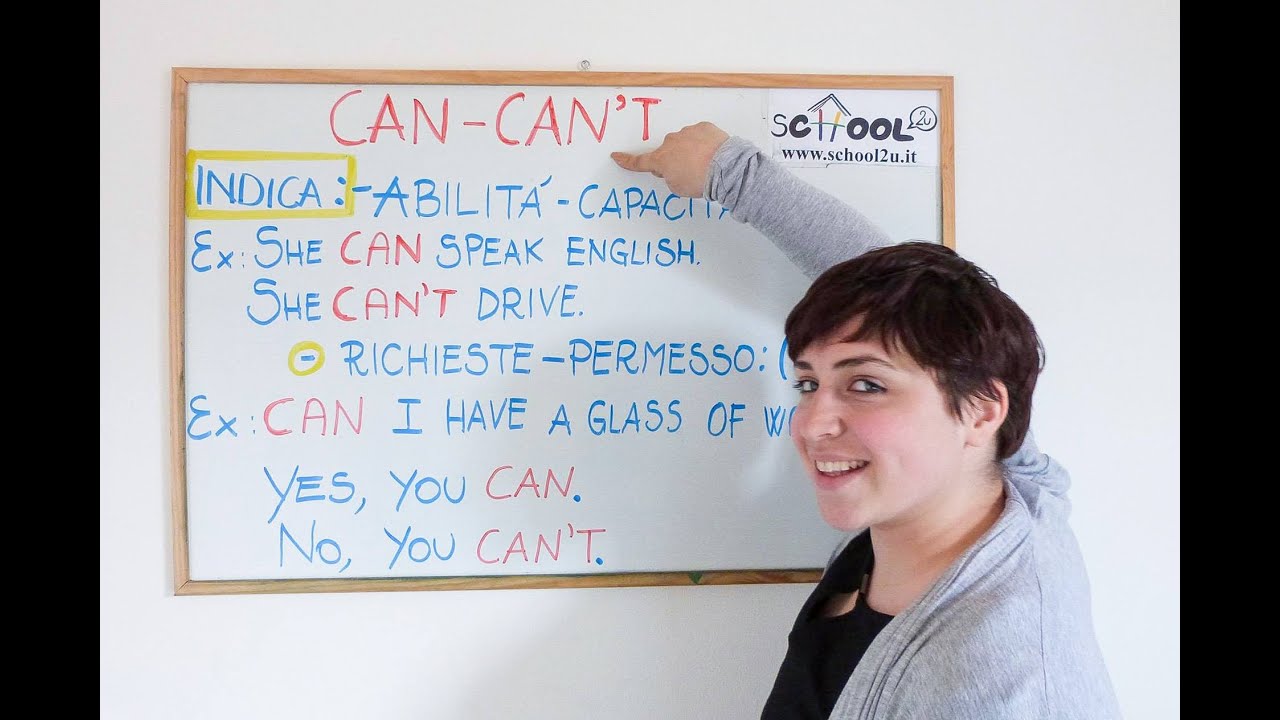 CAN - CAN'T
SCHOOL 2u
www.school2u.it
INDICA: - ABILITÁ - CAPACITÁ
Ex: SHE CAN SPEAK ENGLISH.
SHE CAN'T DRIVE.
- RICHIESTE - PERMESSO: (
Ex: CAN I HAVE A GLASS OF
YES, YOU CAN.
NO, YOU CAN'T.